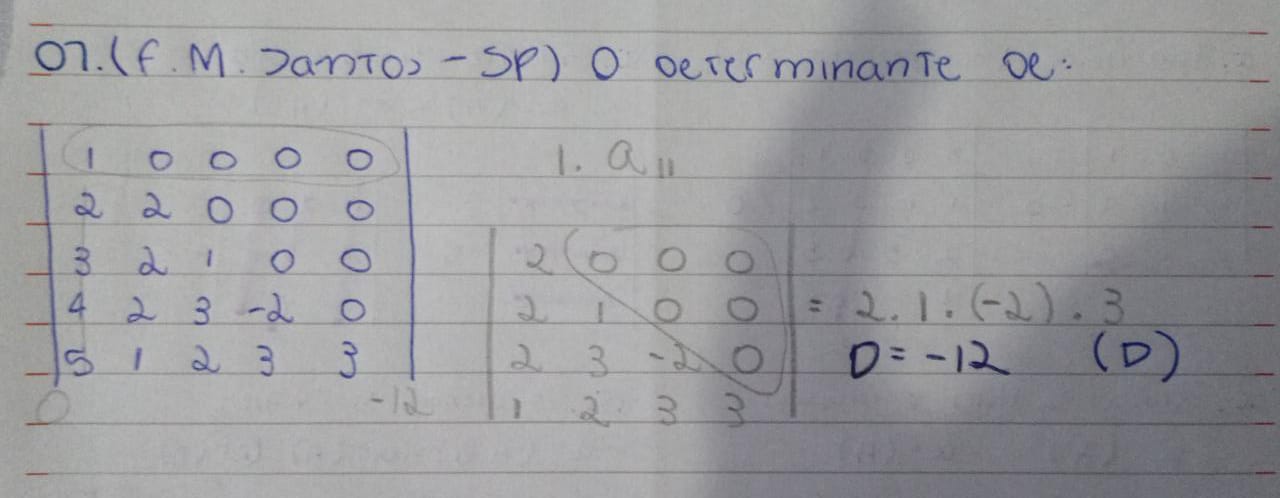 07. (F. M. Santos - SP) O Determinante de:
1 0 0 0 0
2 2 0 0 0
3 2 1 0 0
4 2 3 -2 0
5 1 2 3 3
0 -12
1. a₁₁
2 0 0 0
2 1 0 0 = 2.1.(-2).3
2 3 -2 0 D = -12 (D)
1 2 3 3